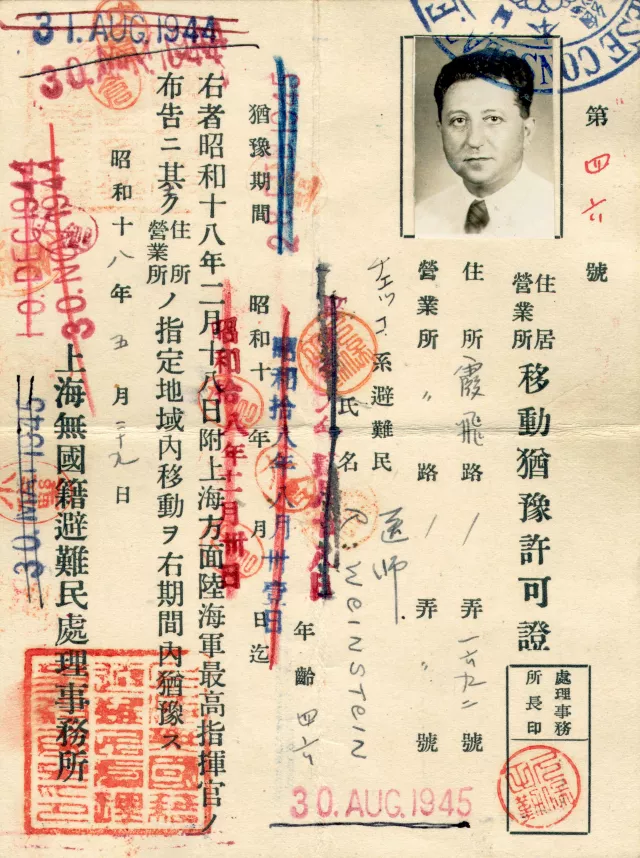 第四六號
住居營業所移動猶豫許可證
處理事務所長印
住所霞飛路/弄一六九二號
營業所〃路/弄〃號
チエツコ系避難民 医師
氏名 R. WEINSTEIN
年齡四六
30.AUG.1945
猶豫期間 昭和十 年 月 日迄
昭和拾八年八月卅壹日
昭和拾八年十一月卅日
右者昭和十八年二月十八日附上海方面陸海軍最高指揮官ノ
布告ニ其ク住所營業所ノ指定地域內移動ヲ右期間內猶豫ス
昭和十八年五月二十九日
上海無國籍避難民處理事務所
31.AUG.1944
30.NOV.1944
10.DEC.1944
30.MAY.1945